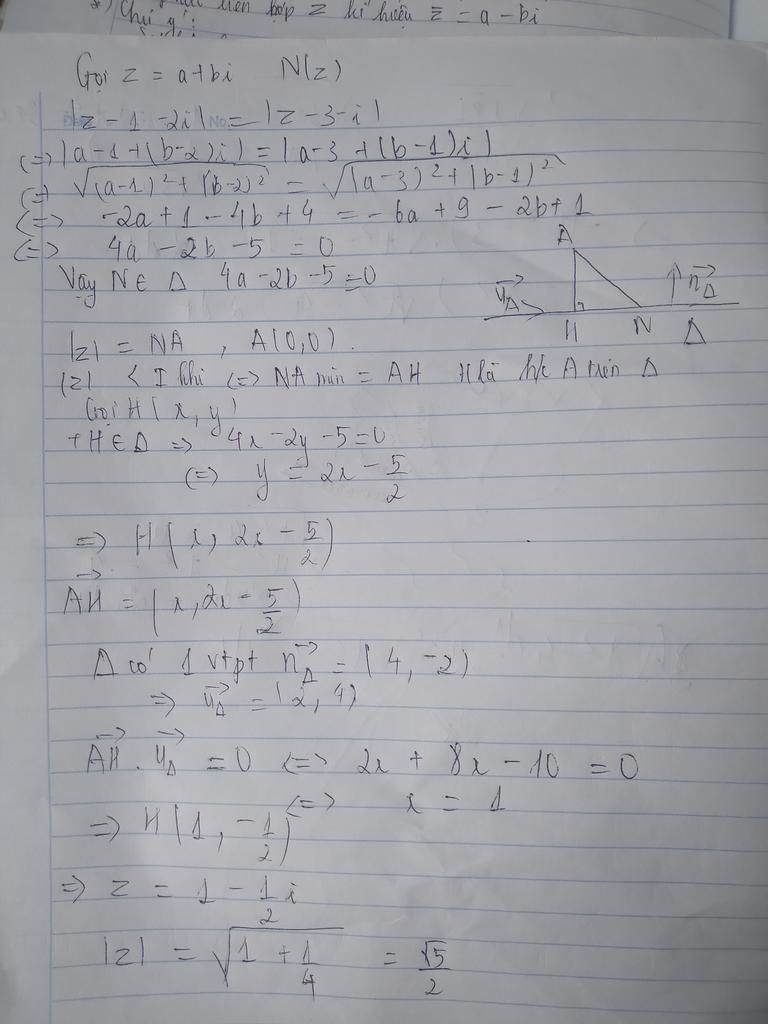 Chú ý: liên hợp z kí hiệu z̄ = a - bi
Gọi z = a+bi N(z)
|z - 1 - 2i| = |z - 3 - i|
(=) |a - 1 + (b-2)i| = |a - 3 + (b-1)i|
(=) √((a-1)² + (b-2)²) = √((a-3)² + (b-1)²)
(=> -2a + 1 - 4b + 4 = -6a + 9 - 2b + 1
(=> 4a - 2b - 5 = 0
Vậy N ∈ Δ 4a - 2b - 5 = 0
A
u⃗_Δ
n⃗_Δ
H N Δ
|z| = NA , A(0,0).
|z| khi (=> NA min = AH H là h/c A trên Δ
Gọi H(x, y)
+ H ∈ Δ => 4x - 2y - 5 = 0
(=> y = 2x - 5/2
=> H(x, 2x - 5/2)
A⃗H⃗ = (x, 2x - 5/2)
Δ có 1 vtpt n⃗_Δ = (4, -2)
=> u⃗_Δ = (2, 4)
A⃗H⃗ . u⃗_Δ = 0 (=> 2x + 8x - 10 = 0
(=> x = 1
=> H(1, -1/2)
=> z = 1 - 1/2 i
|z| = √(1 + 1/4) = √5/2